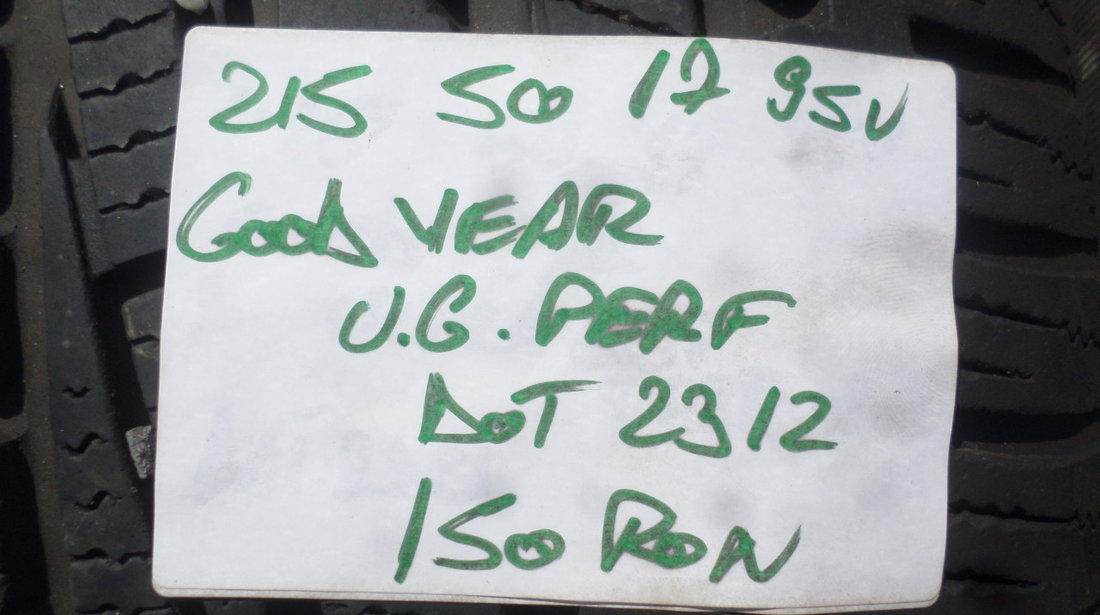 215 50 17 95V
GOOD YEAR
U.G. PERF
DOT 2312
150 RON